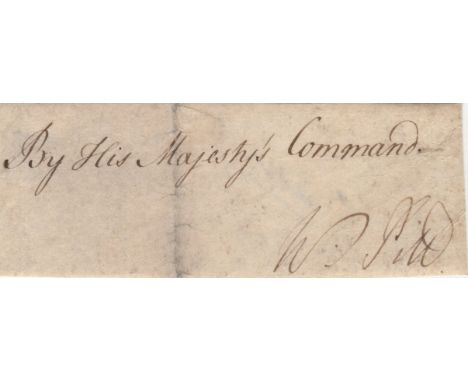 By His Majesty's Command.
W. Pitt